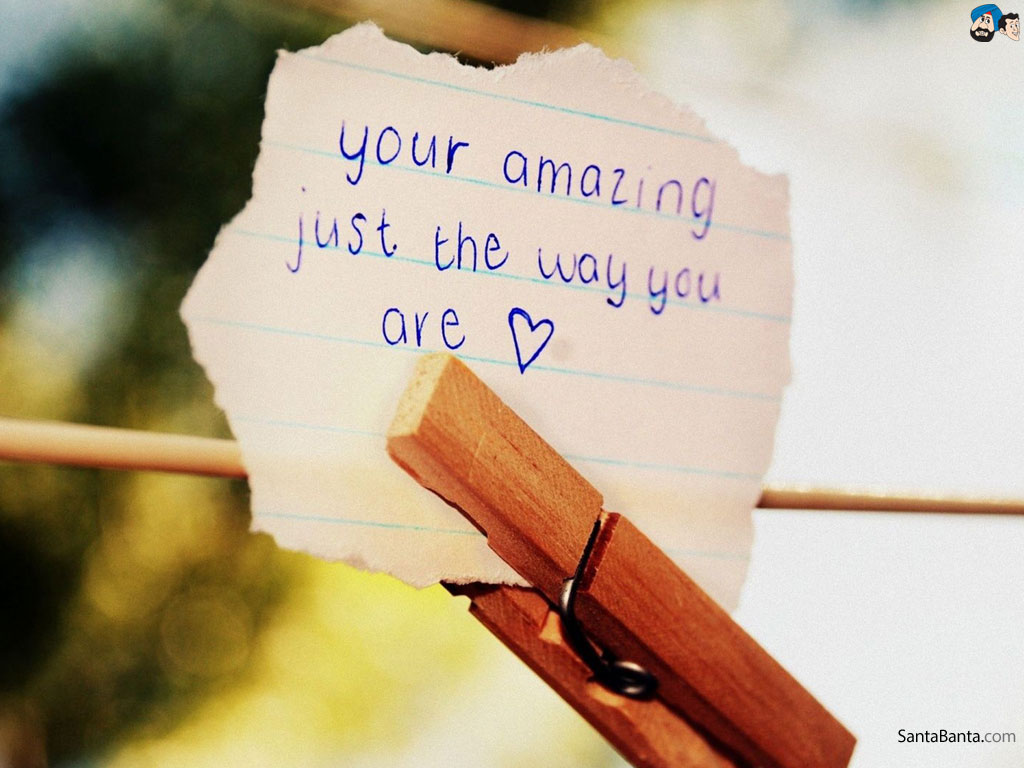 your amazing
just the way you
are ♡
SantaBanta.com